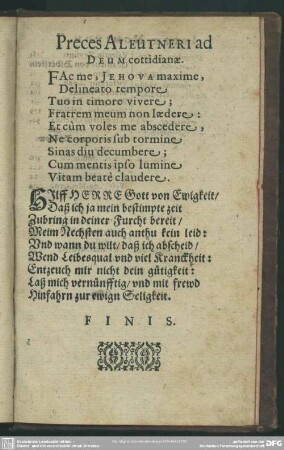 Preces ALEUTNERI ad
DEUM cottidianæ.
FAc me, JEHOVA maxime,
Delineato tempore
Tuo in timore vivere;
Fratrem meum non lædere:
Et cùm voles me abscedere,
Ne corporis sub tormine
Sinas diu decumbere;
Cum mentis ipso lumine
Vitam beatè claudere.
HIlff HERRE Gott von Ewigkeit/
Daß ich ja mein bestimpte zeit
Zubring in deiner Furcht bereit/
Meim Nechsten auch anthu kein leid:
Vnd wann du wilt/ daß ich abscheid/
Wend Leibesqual vnd viel Kranckheit:
Entzeuch mir nicht dein gütigkeit:
Laß mich vernünfftig/ vnd mit frewd
Hinfahrn zur ewign Seligkeit.
FINIS.
DFG